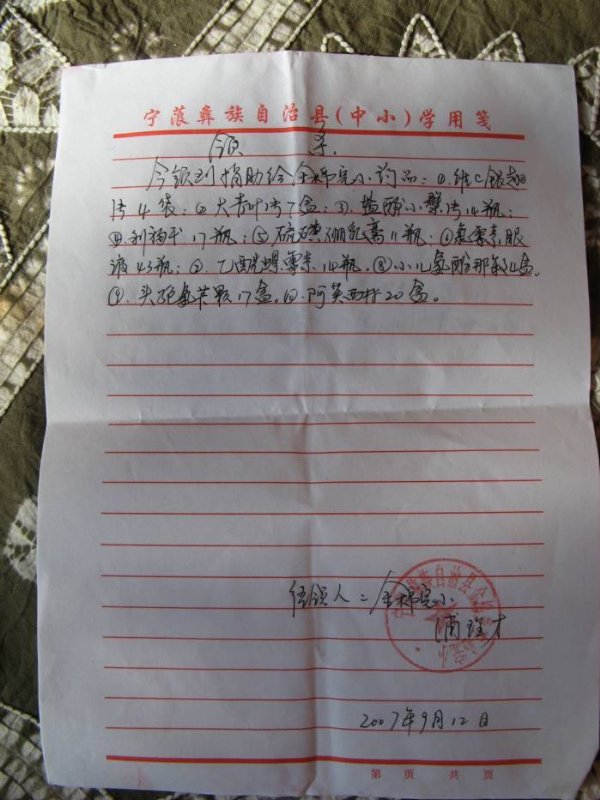 宁蒗彝族自治县(中小)学用笺
领 条
今领到捐助给金棉完小药品:①.维C银翘
片4袋;②大青叶片7盒;③.盐酸小檗片14瓶;
④.利福平17瓶;⑤硫磺硼乳膏11瓶;⑥氯霉素眼
液43瓶;⑦.乙酰螺霉素14瓶,⑧小儿氨酚那敏4盒。
⑨.头孢氨苄颗17盒。⑩.阿莫西林20盒。
经领人:金棉完小
2007年9月12日
第 页 共 页